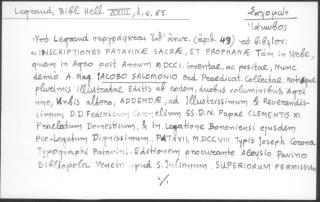 Legrand, Bibl. Hell. XVIII, 1, σ. 55
Σαλομών
Ἰάκωβος
Ὑπὸ Legrand περιγράφεται ὑπ' ἀριθ. 49 τὸ βιβλίον:
«INSCRIPTIONES PATAVINÆ SACRÆ, ET PROPHANÆ Tam in Urbe,
quam in Agro post Annum MDCCI. inventæ, ac positæ, Nunc
demò A. Mag. IACOBO SALOMONIO Ord. Praedicat. Collectæ Notisque
plurimis illustratæ Editis ab eodem, duobus voluminibus Agri
uno, Urbis altero, ADDENDÆ, ad Illustrissimum & Reverendis-
simum D.D. Federicum Cornelium SS.D.N. Papæ CLEMENTIS XI.
Praelatum Domesticum, & In Legatione Bononiensi ejusdem
Pro-Legatum Dignissimum. PATAVII, M.DCCVIII. Typis Joseph Corona
Typographi Patavini. Editionem procurante Aloysio Pavino
Bibliopola Veneto apud S. Iulianum. SUPERIORUM PERMISSU»
./.